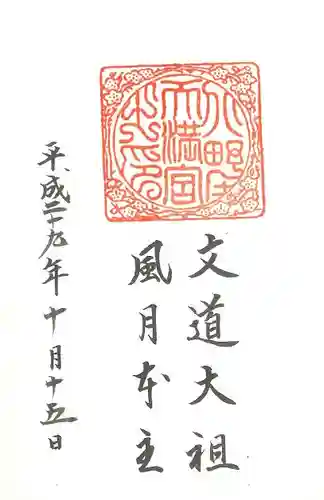 北野天満宮参拝印
文道大祖
風月本主
平成二十九年十月十五日